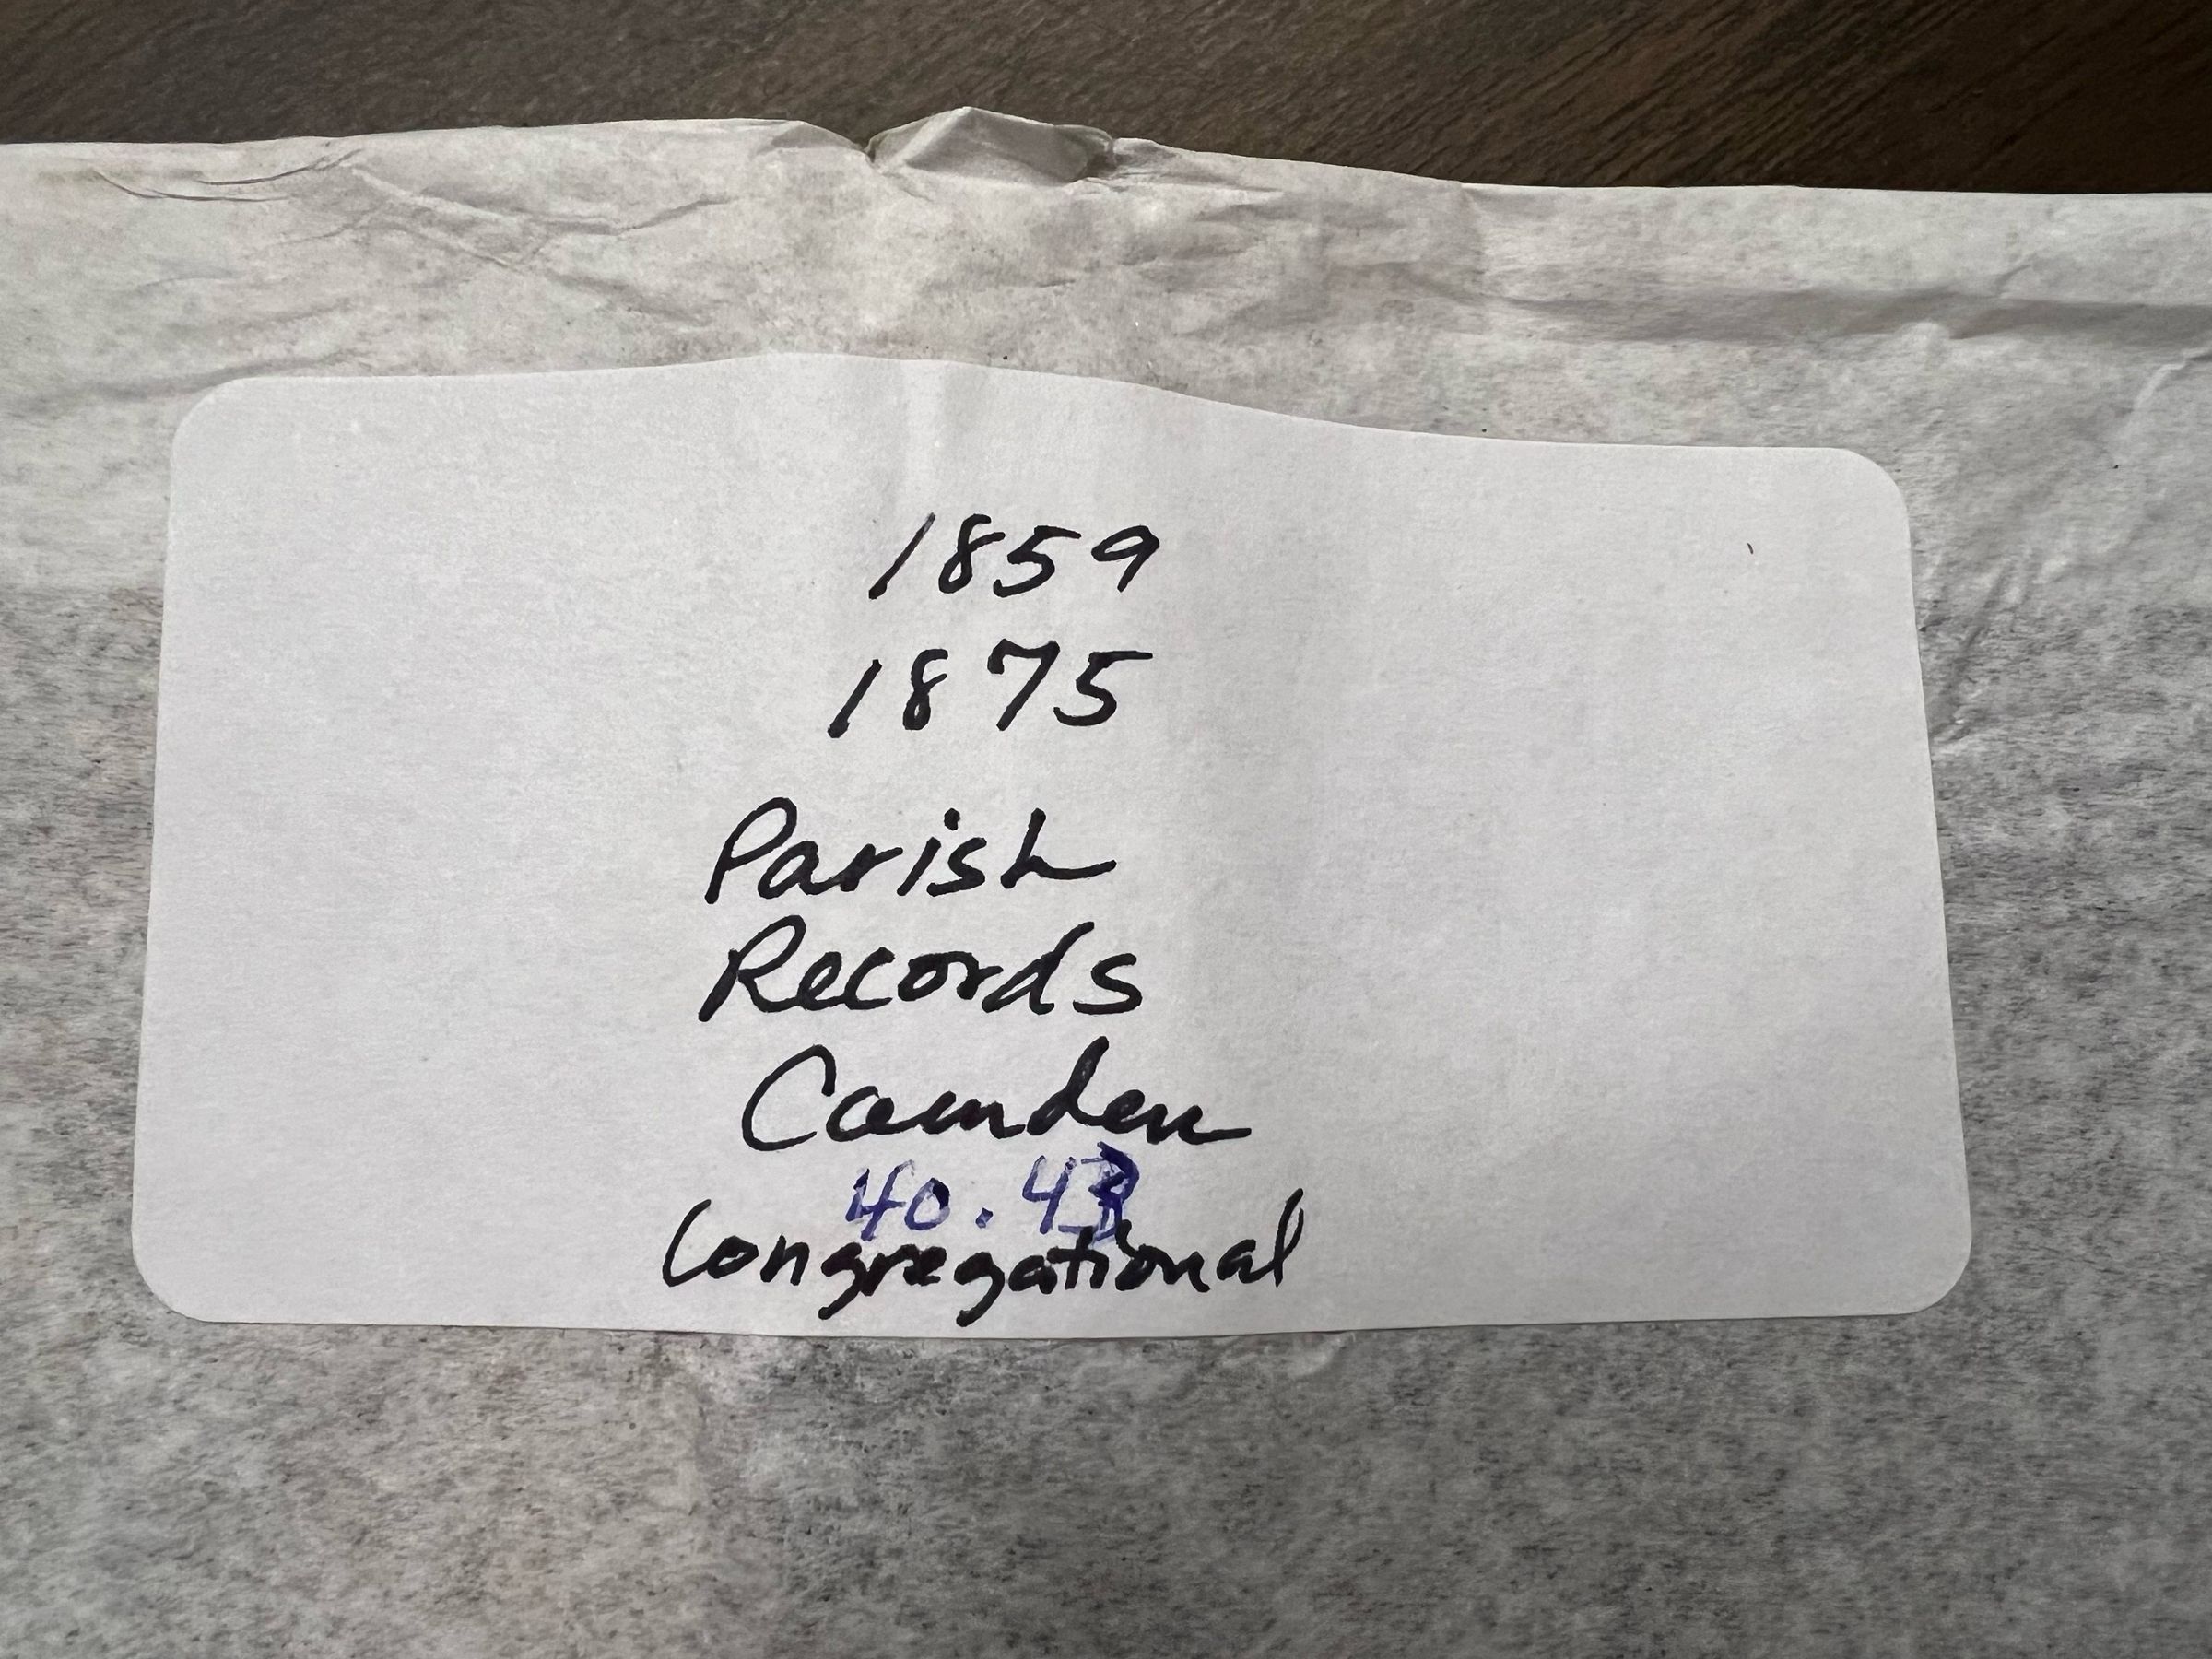 1859
1875
Parish
Records
Camden
40.43
Congregational